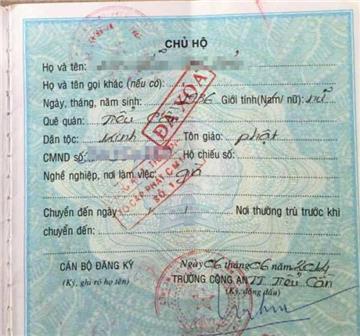 CHỦ HỘ
Họ và tên:
Họ và tên gọi khác (nếu có):
Ngày, tháng, năm sinh: 1936 Giới tính(Nam/ nữ): nữ
Quê quán: Tiểu Cần
ĐÃ XÓA
Dân tộc: Kinh Tôn giáo: phật
CMND số: Hộ chiếu số:
Nghề nghiệp, nơi làm việc: già
Chuyển đến ngày / Nơi thường trú trước khi
chuyển đến:
Ngày 06 tháng 06 năm 2014
CÁN BỘ ĐĂNG KÝ TRƯỞNG CÔNG AN TT Tiểu Cần
(Ký, ghi rõ họ tên) (Ký, đóng dấu)